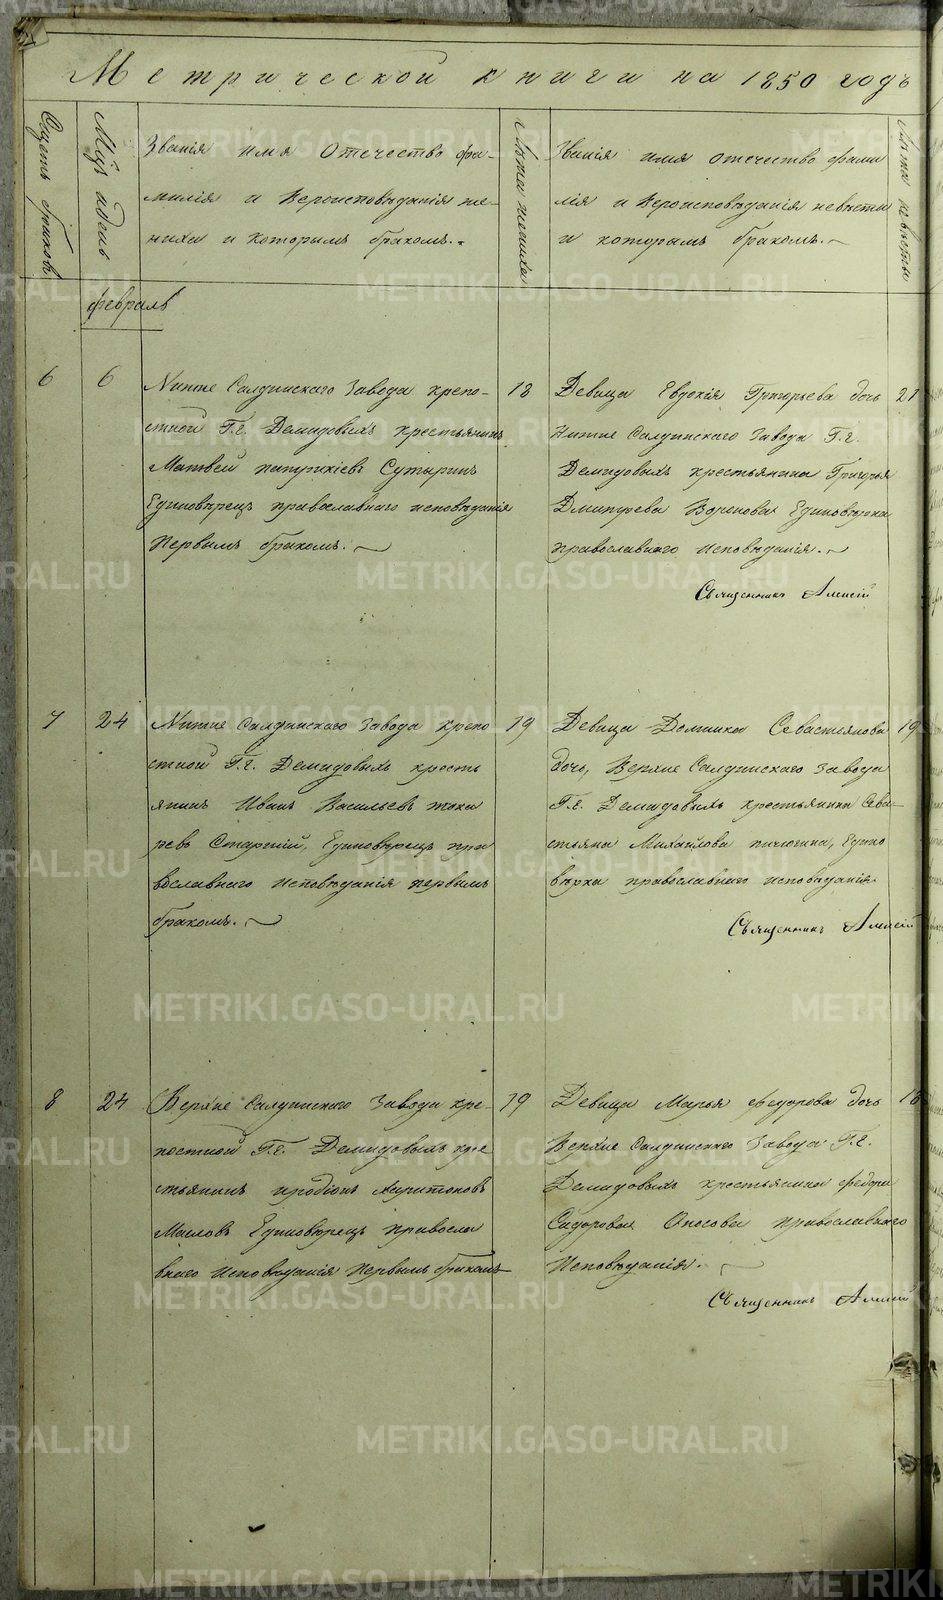 Метрической книги на 1850 годъ
Счетъ браковъ
Мѣс. и день
Званія имя Отечество фа-
милія и Вероисповѣданія же-
ниха и Которымъ бракомъ.
Лѣта жениха
Званія имя отечество фами
лія и Вероисповѣданія невѣсты
и которымъ бракомъ.
Лѣта невѣсты
февраль
6
6
Нижне Салдинскаго Завода крепо-
стной Г.г. Демидовыхъ крестьянинъ
Матвей патрикіевъ Сутыринъ
Единовѣрецъ православнаго исповѣданія
Первымъ бракомъ.
18
Девица Евдокія Григорьева дочь
Нижне Салдинскаго Завода Г.г.
Демидовыхъ крестьянина Григорья
Дмитрева Единовѣрка
православнаго исповѣданія.
21
Священникъ Алексій
7
24
Нижне Салдинскаго Завода крепо
стной Г.г. Демидовыхъ кресть
янинъ Иванъ Васильевъ тока
ревъ Старшій, Единовѣрецъ пра
вославнаго исповѣданія первымъ
бракомъ.
19
Девица Домника Севастьянова
дочь, Верхне Салдинскаго завода
Г.г. Демидовыхъ крестьянина Сева-
стьяна Михайлова пичюгина, Едино
вѣрка православнаго исповѣданія
19
Священникъ Алексій
8
24
Верхне Салдинскаго Завода кре-
постной Г.г. Демидовыхъ кре
стьянинъ иродіонъ харитоновъ
Масловъ Единовѣрецъ православ
внаго исповѣданія Первымъ бракомъ
19
Девица Марья федорова дочь
Верхне Салдинскаго Завода Г.г.
Демидовыхъ крестьянина федора
Сидорова православнаго
Исповѣданія.
18
Священникъ Алексій
METRIKI.GASO-URAL.RU